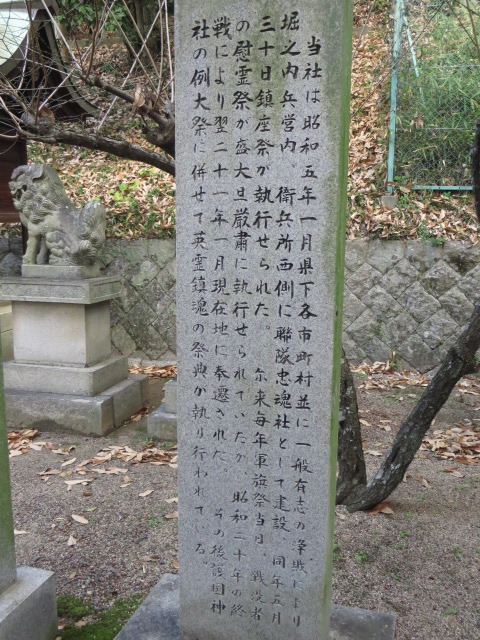 当社は昭和五年一月県下各市町村並に一般有志の浄財により
堀之内兵営内　衛兵所西側に聯隊忠魂社として建設、同年五月
三十日鎮座祭が執行せられた。尓来毎年軍旗祭当日、戦没者
の慰霊祭が盛大且厳粛に執行せられていたが、昭和二十年の終
戦により翌二十一年一月現在地に奉遷された。その後護国神
社の例大祭に併せて英霊鎮魂の祭典が執り行われている。